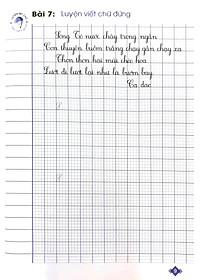 Bài 7: Luyện viết chữ đứng
Sông Tô nước chảy trong ngần
Con thuyền buồm trắng chạy gần chạy xa
Thon thon hai mũi chèo hoa
Lướt đi lướt lại như là bướm bay
Ca dao